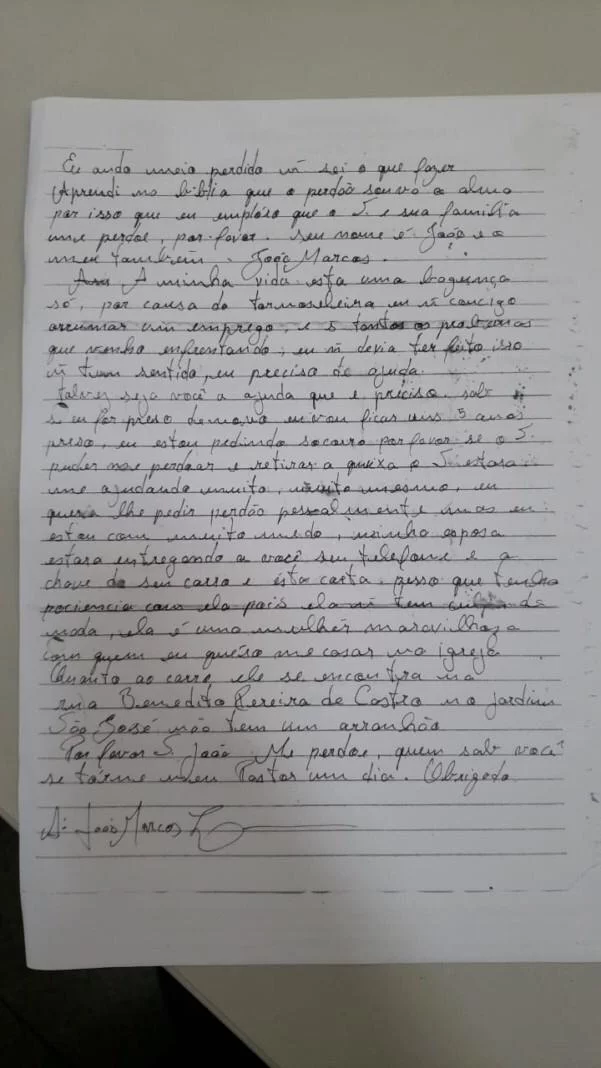 Eu ando meio perdido ñ sei o que fazer
Aprendi na biblia que o perdão souva a alma
por isso que eu emploro que o S. e sua familia
me perdoe, por favor. seu nome é João e o
meu tambem. João Marcos.
A minha vida esta uma bagunça
só, por causa da tornoseleira eu ñ concigo
arrumar um emprego, e s tantos os problemas
que venho enfrentando, eu ñ devia ter feito isso
ñ tem sentido, eu preciso de ajuda.
talvez seja você a ajuda que e preciso. sab
se eu for preso denovo eu vou ficar uns 5 anos
preso, eu estou pedindo socorro por favor se o S.
puder me perdoar e retirar a queixa o S. estara
me ajudando muito, muito mesmo, eu
queria lhe pedir perdão pessoalmente, mas eu
estou com muito medo, minha esposa
estara entregando a você seu telefone e a
chave do seu carro e esta carta. pesso que tenha
paciencia com ela pois ela ñ tem culpa de
nada, ela é uma mulher maravilhoza
com quem eu quéiso me casar na igreja
Quanto ao carro, ele se encontra na
rua Benedito Pereira de Castro no jardim
São José não tem um arranhão
Por favor S. João Me perdoe, quem sab você
se torne meu Pastor um dia. Obrigado.
A: João Marcos